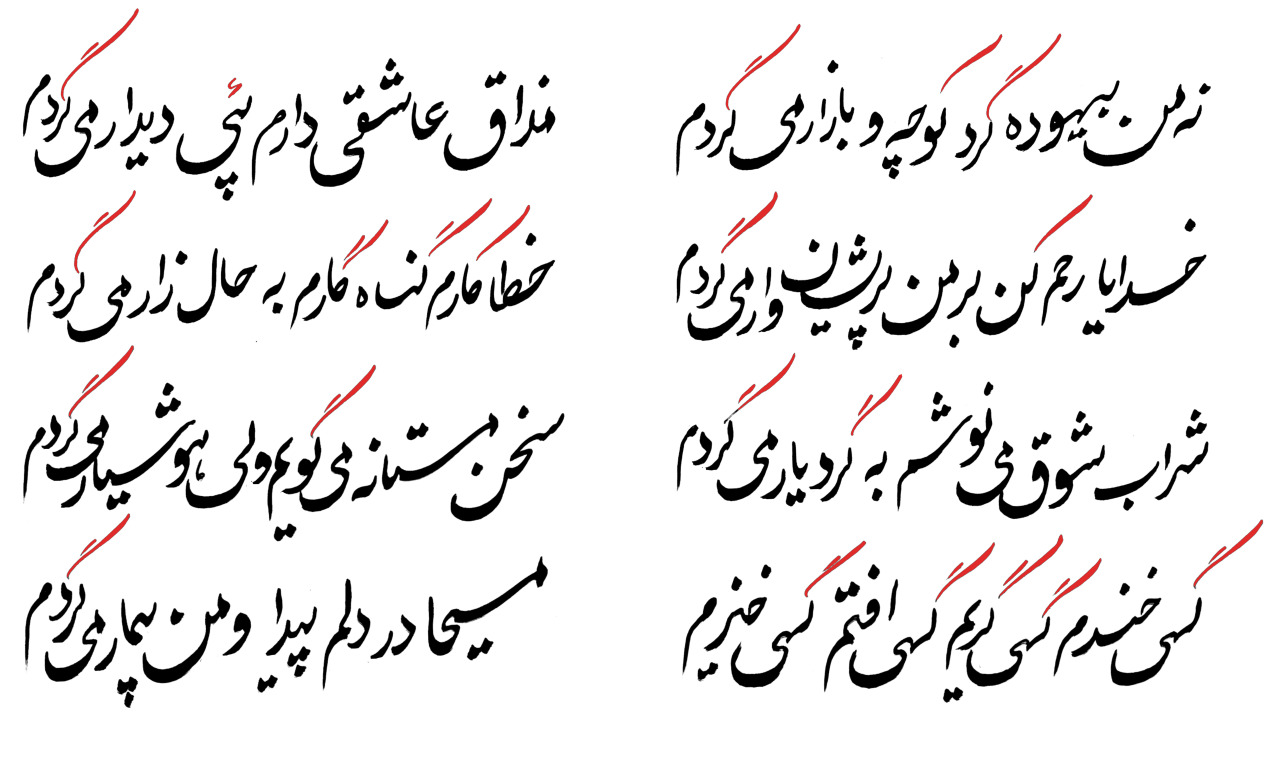 نه من بیهوده گرد کوچه و بازار می گردم
مذاق عاشقی دارم پئی دیدار می گردم
خدایا رحم کن بر من پریشان وار می گردم
خطا کارم گناه گارم به حال زار می گردم
شراب شوق می نوشم به گرد یار می گردم
سخن مستانه می گویم ولی هوشیار می گردم
گهی خندم گهی گریم گهی افتم گهی خیزم
مسیحا در دلم پیدا و من بیمار می گردم